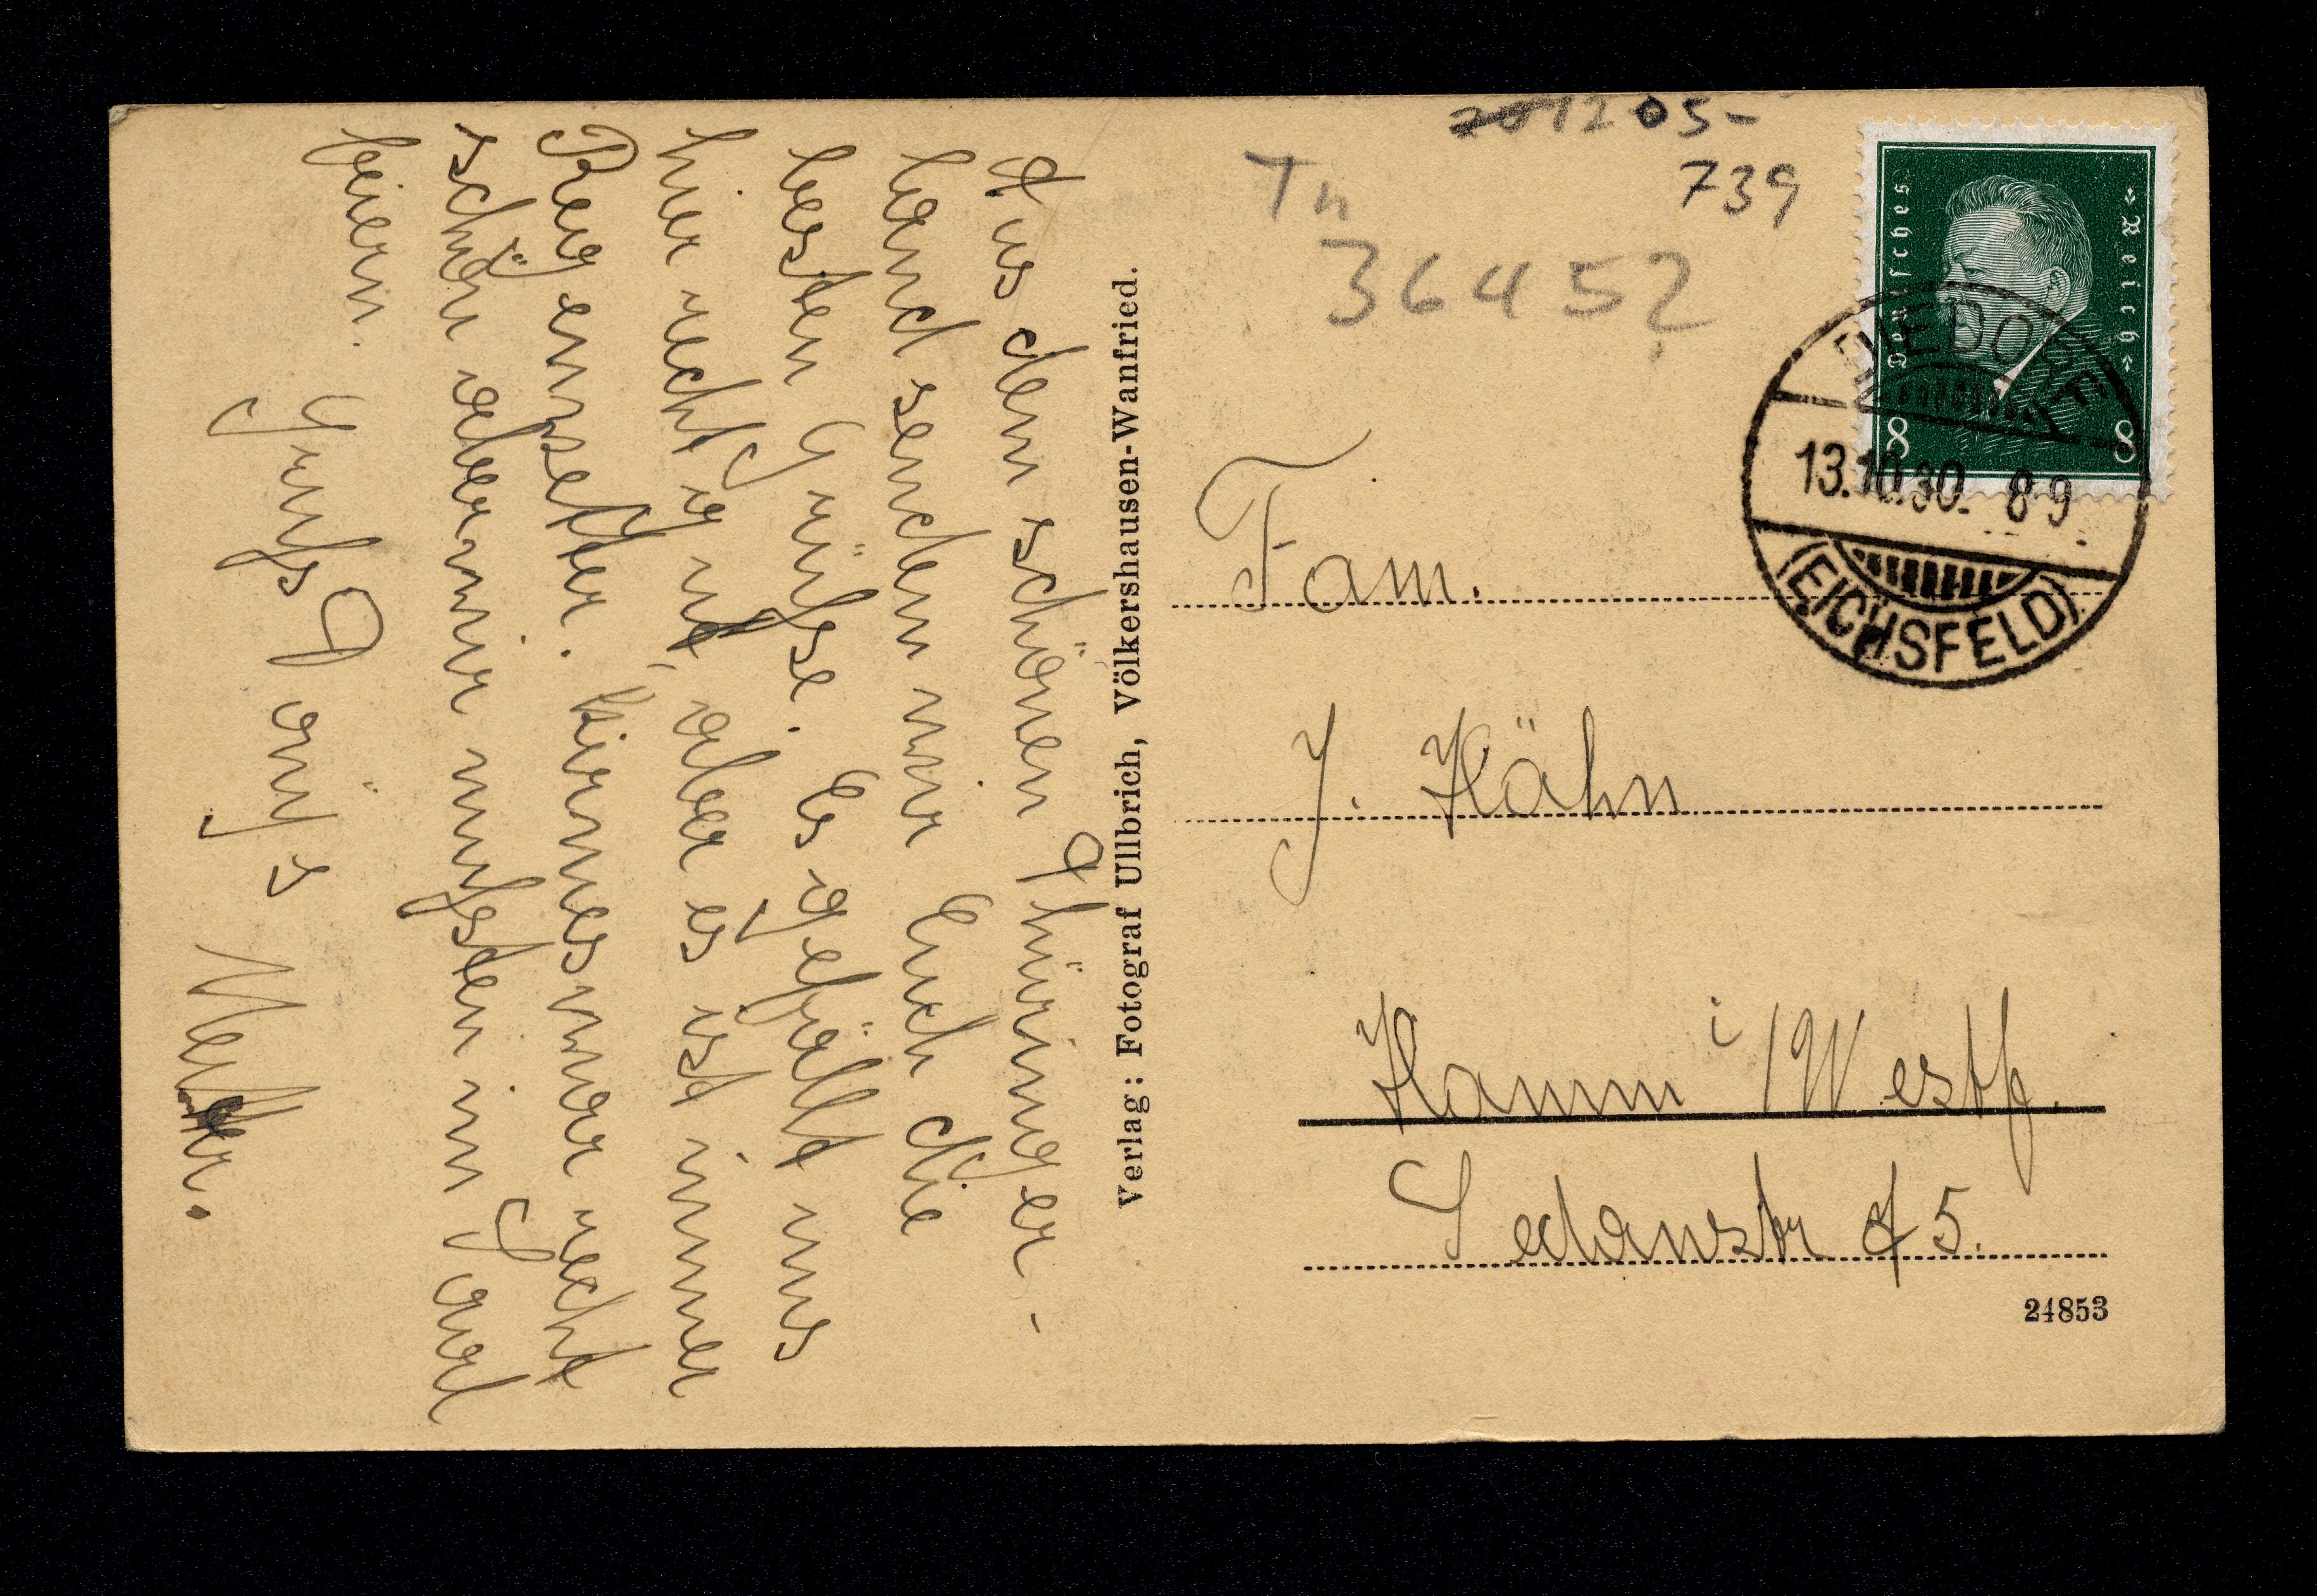 Aus dem schönen Thüringer-
land senden wir Euch die
besten Grüße. Es gefällt uns
hier recht gut, aber es ist immer
Regenwetter. Kirmes war recht
schön aber wir mußten im Saal
feiern.
Gruß D Meuter.
Verlag: Fotograf Ullbrich, Völkershausen-Wanfried.
201205-
739
Tn
36452
Deutsches Reich
8 8
DIEDORF
13.10.30. 8-9
(EICHSFELD)
Fam.
J. Hähn
Hamm i/Westf.
Sedanstr 5.
24853